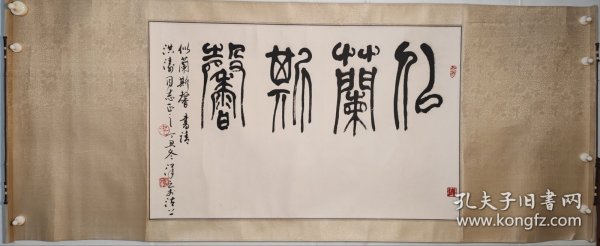 似蘭斯馨
似蘭斯馨 書請
洪濤同志正之 丁丑冬
孔夫子旧书网
www.kongfz.com